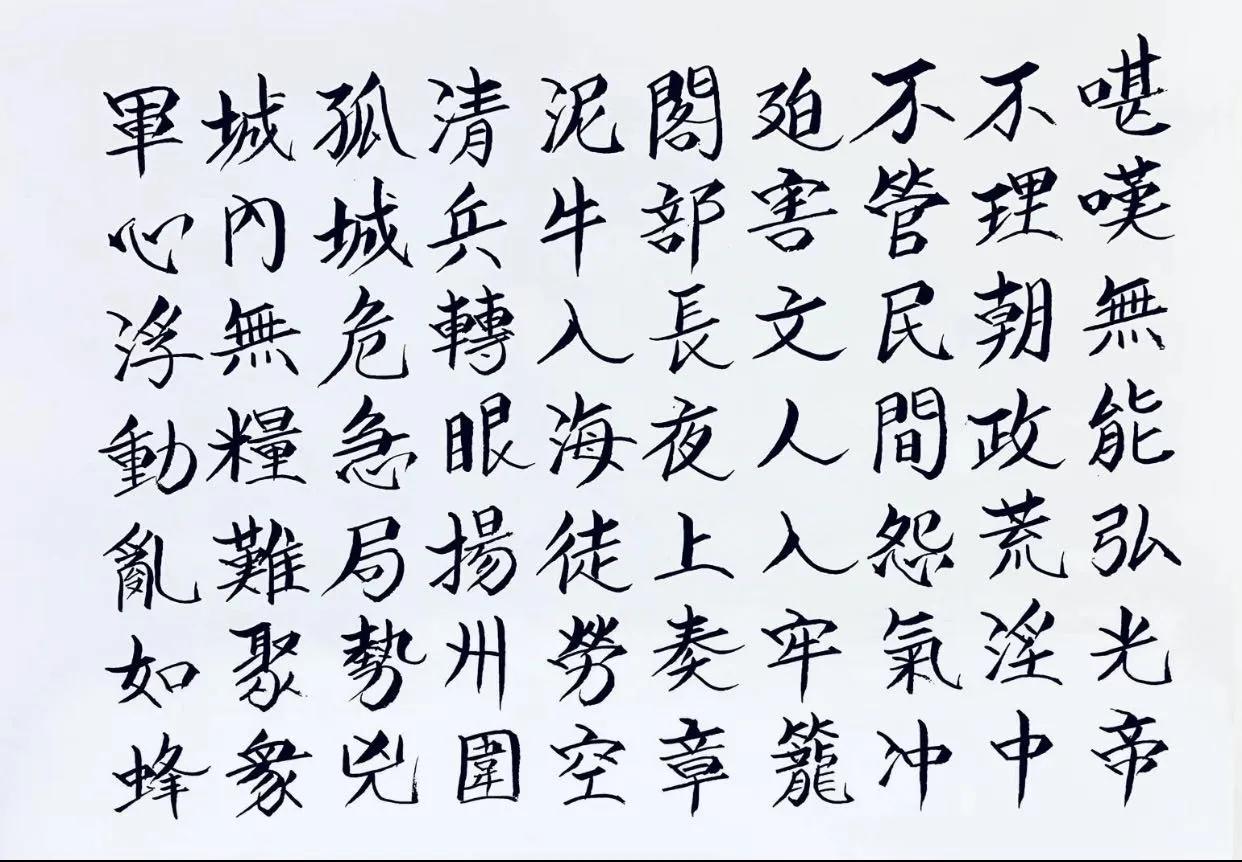 嘆嘆無能弘光帝
不理朝政荒淫中
不管民間怨氣冲
迫害文人入牢籠
閣部長夜上奏章
泥牛入海徒勞空
清兵轉眼揚州圍
孤城危急局勢兇
城內無糧難聚衆
軍心浮動亂如蜂